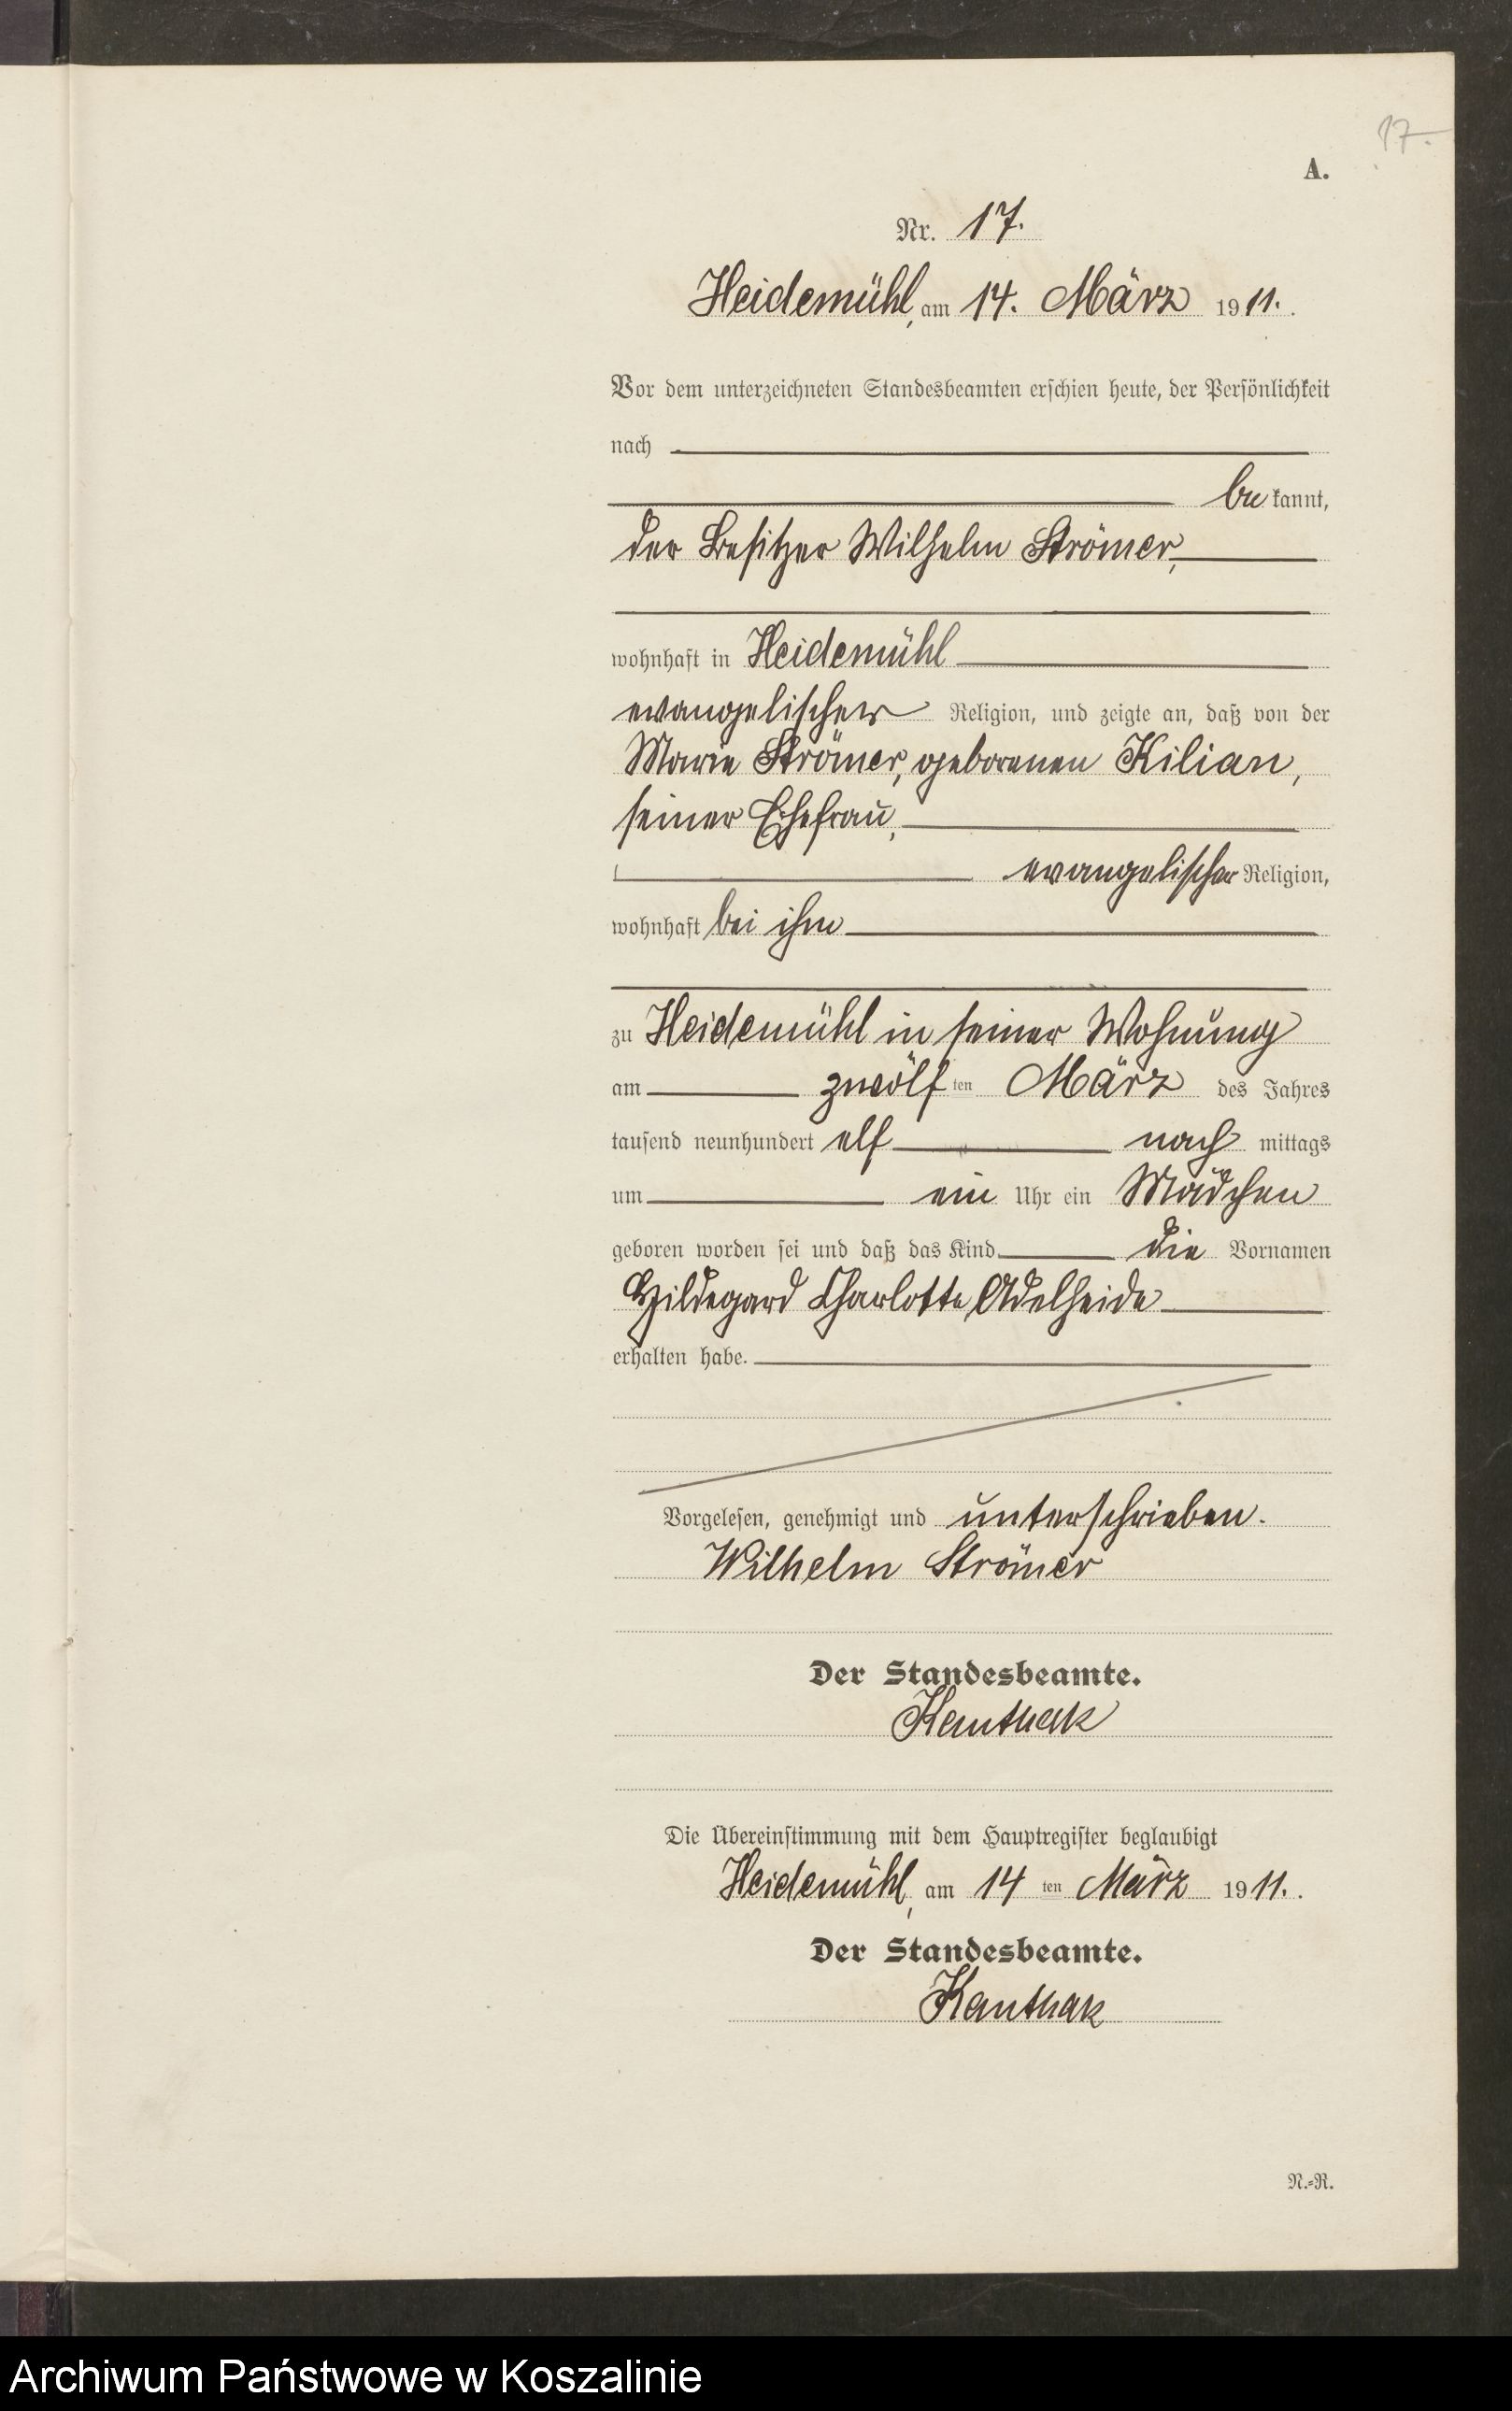 17.
A.
Nr. 17.
Heidemühl, am 14. März 1911.
Vor dem unterzeichneten Standesbeamten erschien heute, der Persönlichkeit
nach
be kannt,
der Besitzer Wilhelm Strömer,
wohnhaft in Heidemühl
evangelischer Religion, und zeigte an, daß von der
Marie Strömer, geborenen Kilian,
seiner Ehefrau,
evangelischer Religion,
wohnhaft bei ihm
zu Heidemühl in seiner Wohnung
am zwölf ten März des Jahres
tausend neunhundert elf nach mittags
um ein Uhr ein Mädchen
geboren worden sei und daß das Kind die Vornamen
Hildegard Charlotte Adelheide
erhalten habe.
Vorgelesen, genehmigt und unterschrieben.
Wilhelm Strömer
Der Standesbeamte.
Kanthak
Die Übereinstimmung mit dem Hauptregister beglaubigt
Heidemühl, am 14 ten März 1911.
Der Standesbeamte.
Kanthak
N.=R.
Archiwum Państwowe w Koszalinie